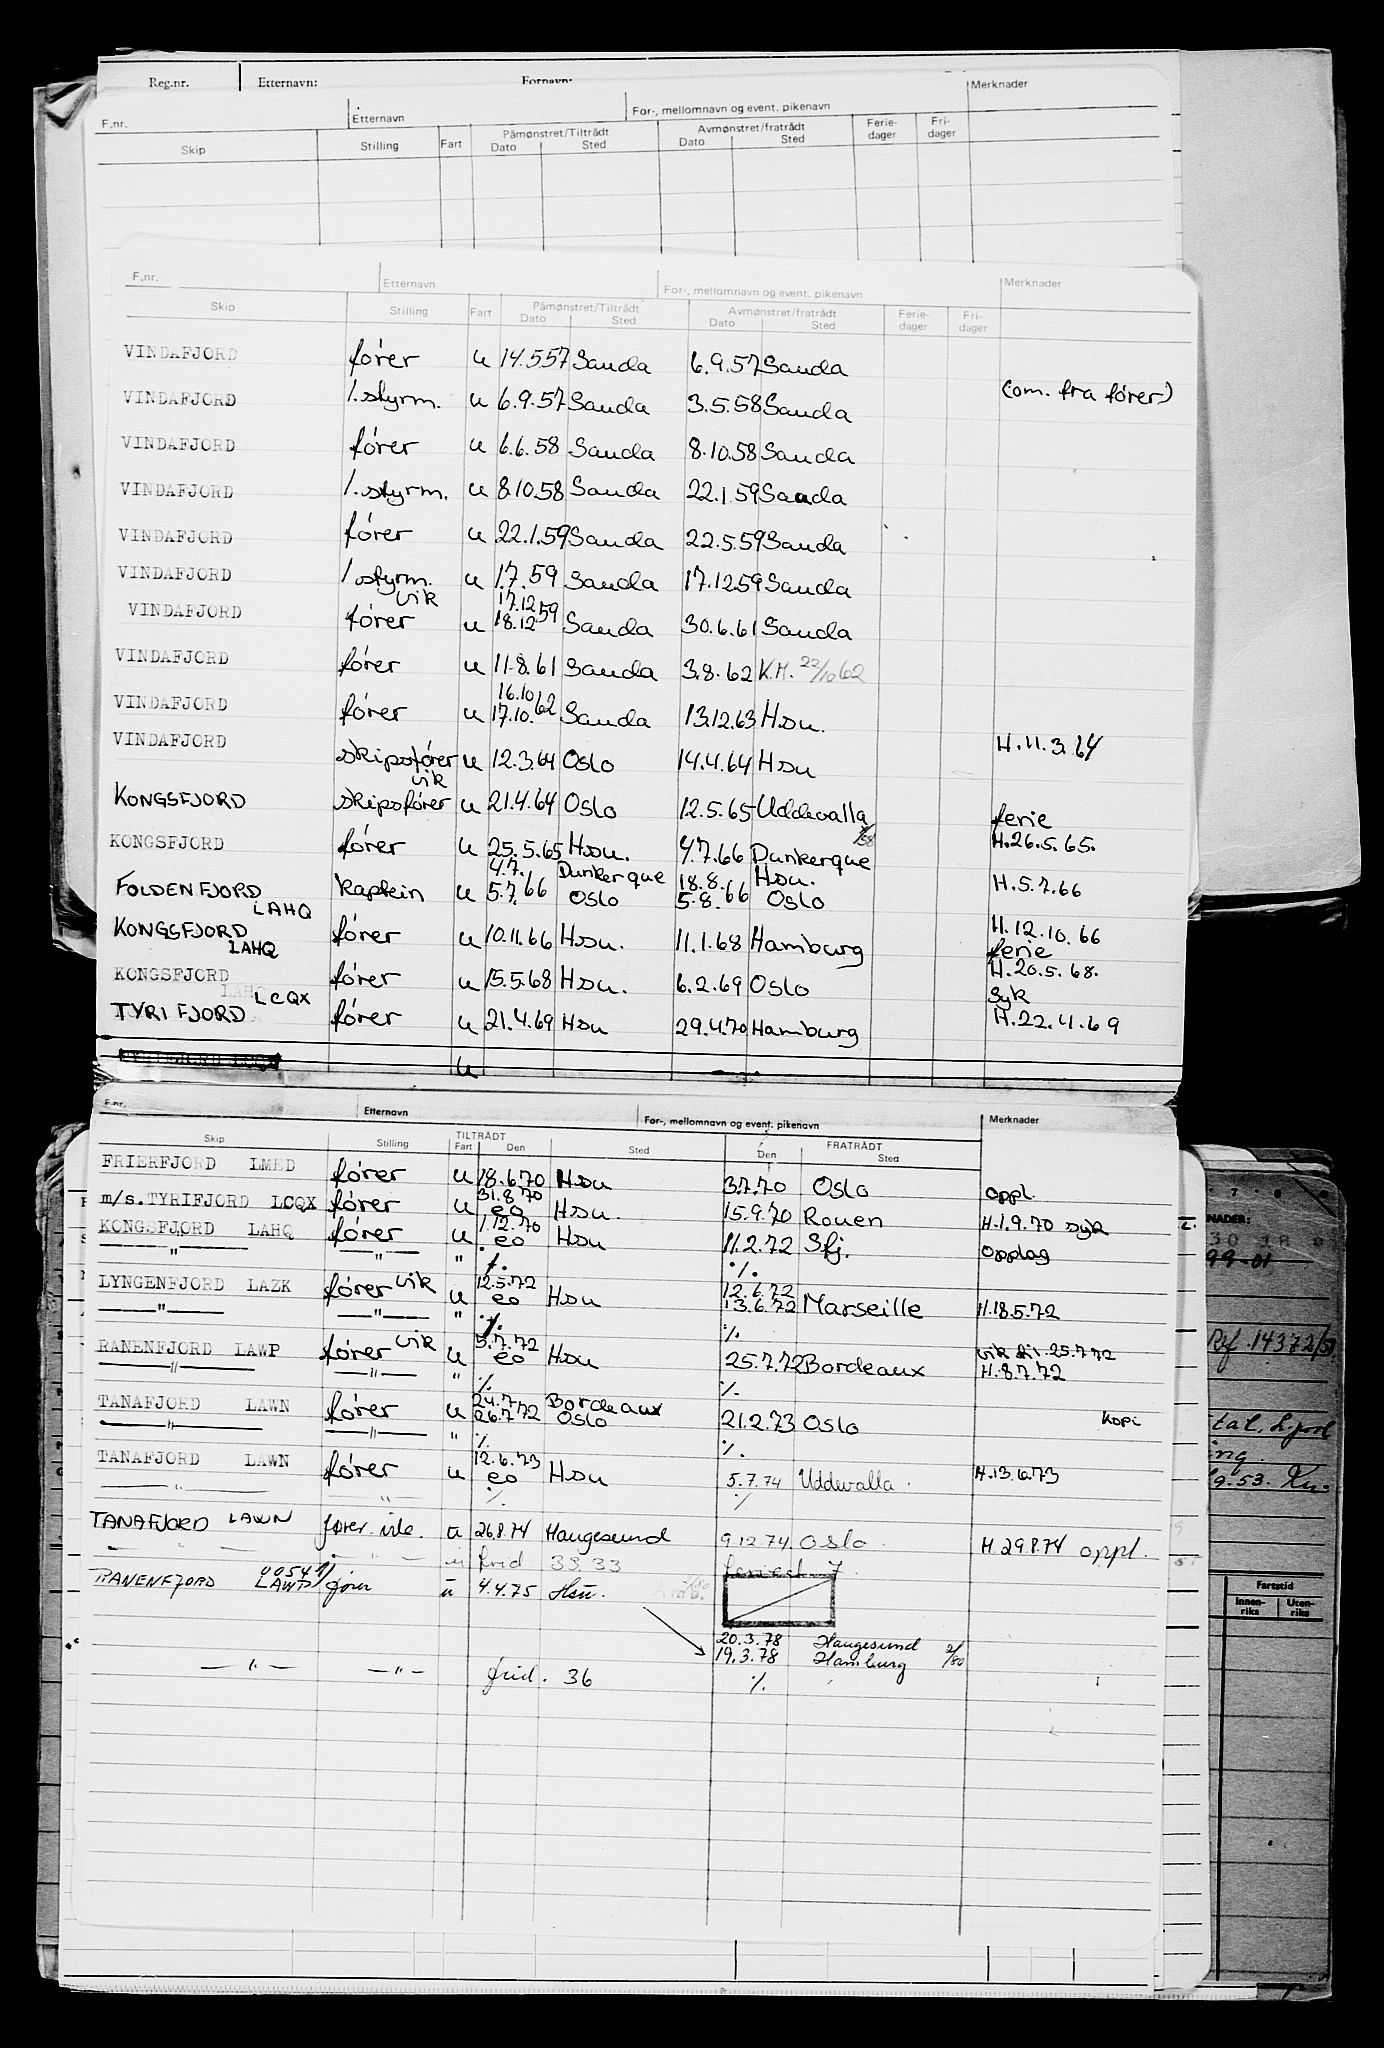 Reg.nr. Etternavn: Fornavn:
F.nr. Etternavn For-, mellomnavn og event. pikenavn Merknader
Skip Stilling Fart Påmønstret/Tiltrådt Dato Sted Avmønstret/fratrådt Dato Sted Ferie-dager Fri-dager
F.nr. Etternavn For-, mellomnavn og event. pikenavn Merknader
Skip Stilling Fart Påmønstret/Tiltrådt Dato Sted Avmønstret/fratrådt Dato Sted Ferie-dager Fri-dager
VINDAFJORD fører u 14.5.57 Sauda 6.9.57 Sauda
VINDAFJORD 1.styrm. u 6.9.57 Sauda 3.5.58 Sauda (om. fra fører)
VINDAFJORD fører u 6.6.58 Sauda 8.10.58 Sauda
VINDAFJORD 1.styrm. u 8.10.58 Sauda 22.1.59 Sauda
VINDAFJORD fører u 22.1.59 Sauda 22.5.59 Sauda
VINDAFJORD 1 styrm. u 1.7.59 Sauda 17.12.59 Sauda
VINDAFJORD vik fører u 17.12 18.12 59 Sauda 30.6.61 Sauda
VINDAFJORD fører u 11.8.61 Sauda 3.8.62 K.H. 22/10 62
VINDAFJORD fører u 16.10 17.10. 62 Sauda 13.12.63 Hsu.
VINDAFJORD skipsfører u 12.3.64 Oslo 14.4.64 Hsu H.11.3.64
KONGSFJORD vik skipsfører u 21.4.64 Oslo 12.5.65 Uddevalla ferie
KONGSFJORD fører u 25.5.65 Hsu. 4.7.66 Dunkerque H.26.5.65.
FOLDENFJORD kaptein u 4.7. 5.7. 66 Dunkerque Oslo 18.8. 5.8. 66 Hsu. Oslo H.5.7.66
LAHQ
KONGSFJORD fører u 10.11.66 Hsu. 11.1.68 Hamburg H.12.10.66 ferie
LAHQ
KONGSFJORD fører u 15.5.68 Hsu. 6.2.69 Oslo H.20.5.68. Syk
LAHQ LCQX
TYRIFJORD fører u 21.4.69 Hsu 29.4.70 Hamburg H.22.4.69
TYRIFJORD LCQX u
F.nr. Etternavn For-, mellomnavn og event. pikenavn Merknader
Skip Stilling Fart TILTRÅDT Den Sted FRATRÅDT Den Sted
FRIERFJORD LMED fører u 18.6.70 Hsu 3.7.70 Oslo oppl.
m/s.TYRIFJORD LCQX fører u 31.8.70 eo Hsu. 15.9.70 Rouen H.1.9.70 syk
KONGSFJORD LAHQ fører u 1.12.70 eo Hsu 11.2.72 Sfj. Opplag
—"— —"— " ./. ./.
LYNGENFJORD LAZK fører vik u 12.5.72 eo Hsu 12.6.72 13.6.72 Marseille H.18.5.72
—"— —"— " ./. ./.
RANENFJORD LAWP fører vik u 5.7.72 eo Hsu 25.7.72 Bordeaux vik til 25.7.72 H.8.7.72
—"— —"— " ./. ./.
TANAFJORD LAWN fører u 24.7 26.7.72 Bordeaux Oslo 21.2.73 Oslo kopi
—"— —"— " ./. ./.
TANAFJORD LAWN fører u 12.6.73 eo Hsu 5.7.74 Uddevalla. H.13.6.73
—"— —"— ./. ./.
TANAFJORD LAWN fører vik. u 26.8.74 Haugesund 9.12.74 Oslo H.29.8.74 oppl.
— " — — " — u frid 33.33 7
RANENFJORD 00541 LAWP fører u 4.4.75 Hsu.
20.3.78 Haugesund
19.3.78 Hamburg 2/80
— " — — " — frid. 36 ./.
NADER:
99-01
14372/
53.
Fartstid
Innen-riks Uten-riks